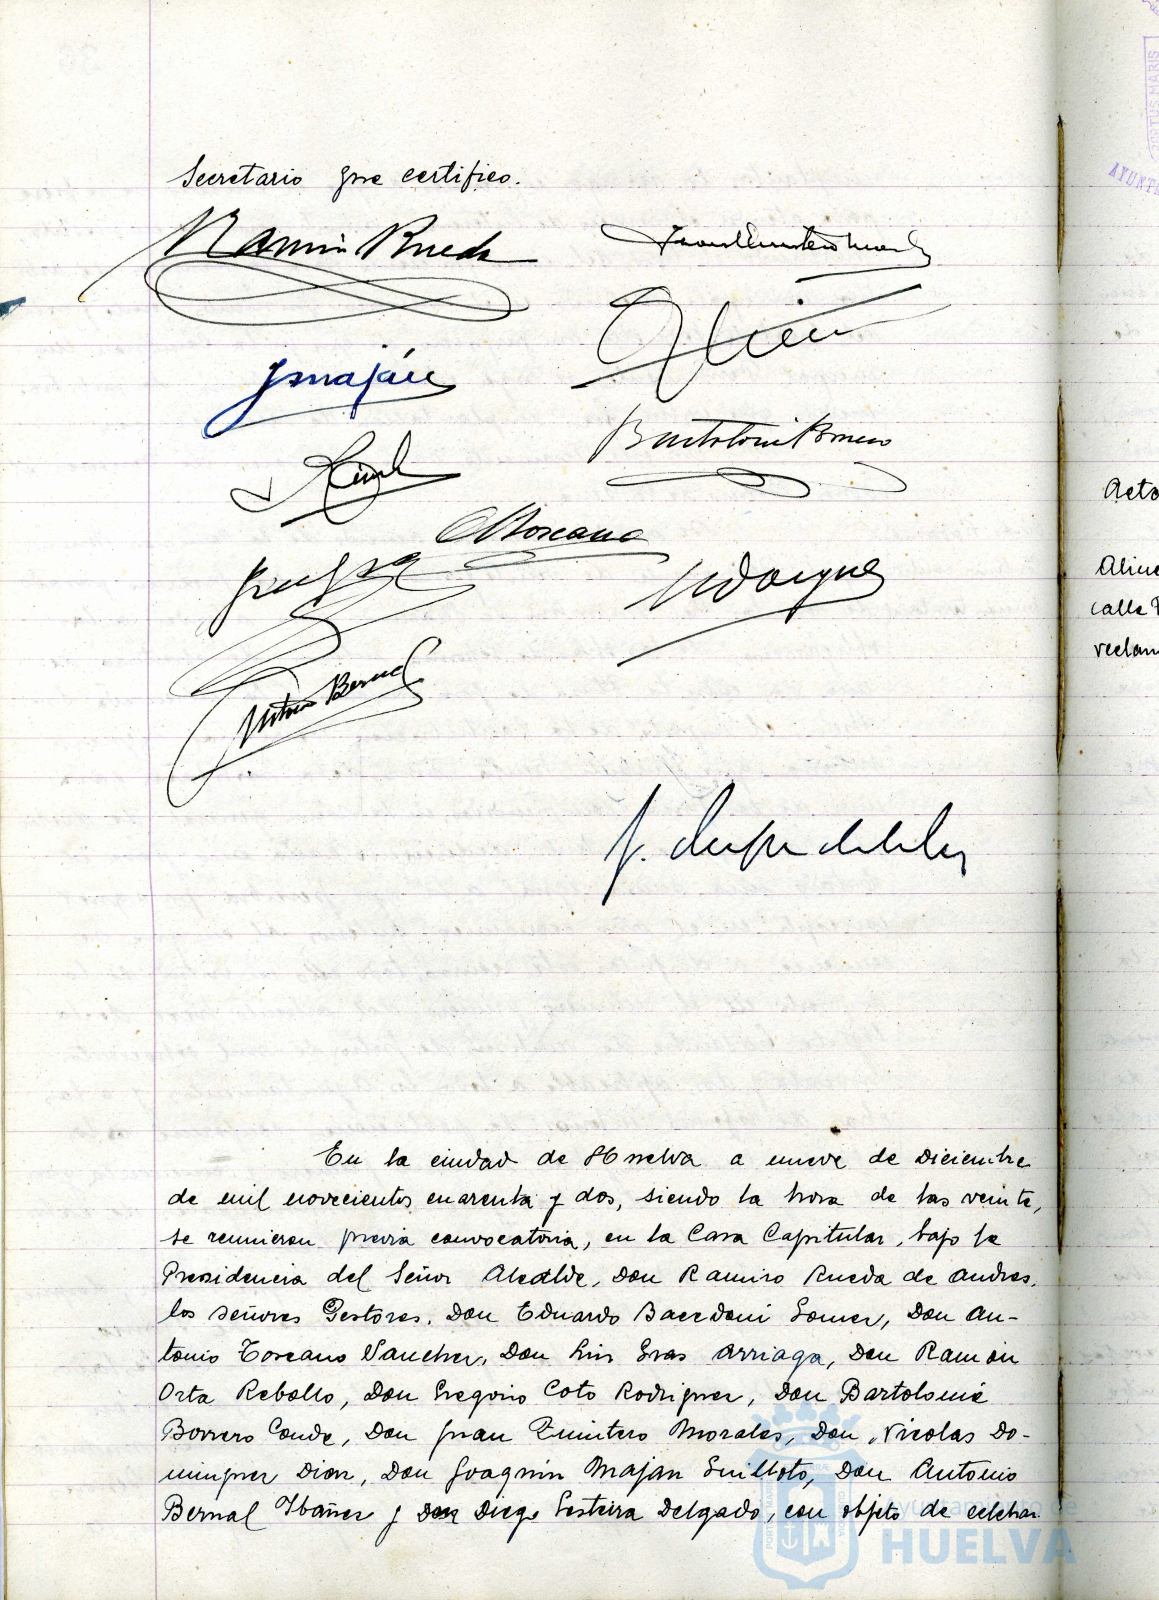 Secretario que certifico.
Ramiro Rueda
Juan Quintero Morales
J. Majan
Bartolomé Borrero
A Toscano
N Domguez
Antonio Bernal
En la ciudad de Huelva a nueve de Diciembre
de mil novecientos cuarenta y dos, siendo la hora de las veinte,
se reunieron previa convocatoria, en la Casa Capitular, bajo la
Presidencia del Señor Alcalde, Don Ramiro Rueda de Andres,
los señores Gestores, Don Eduardo Gomez, Don An-
tonio Toscano Sanchez, Don Luis Gras Arriaga, Don Ramon
Orta Rebollo, Don Gregorio Coto Rodriguez, Don Bartolomé
Borrero Conde, Don Juan Quintero Morales, Don Nicolas Do-
minguez Diaz, Don Joaquin Majan Guilloto, Don Antonio
Bernal Ibañez y Don Diego Sesteira Delgado, con objeto de celebrar
Ayuntamiento de
HUELVA
PORTUS MARIS
AYUNTA
Acto
Aline
calle
reclam